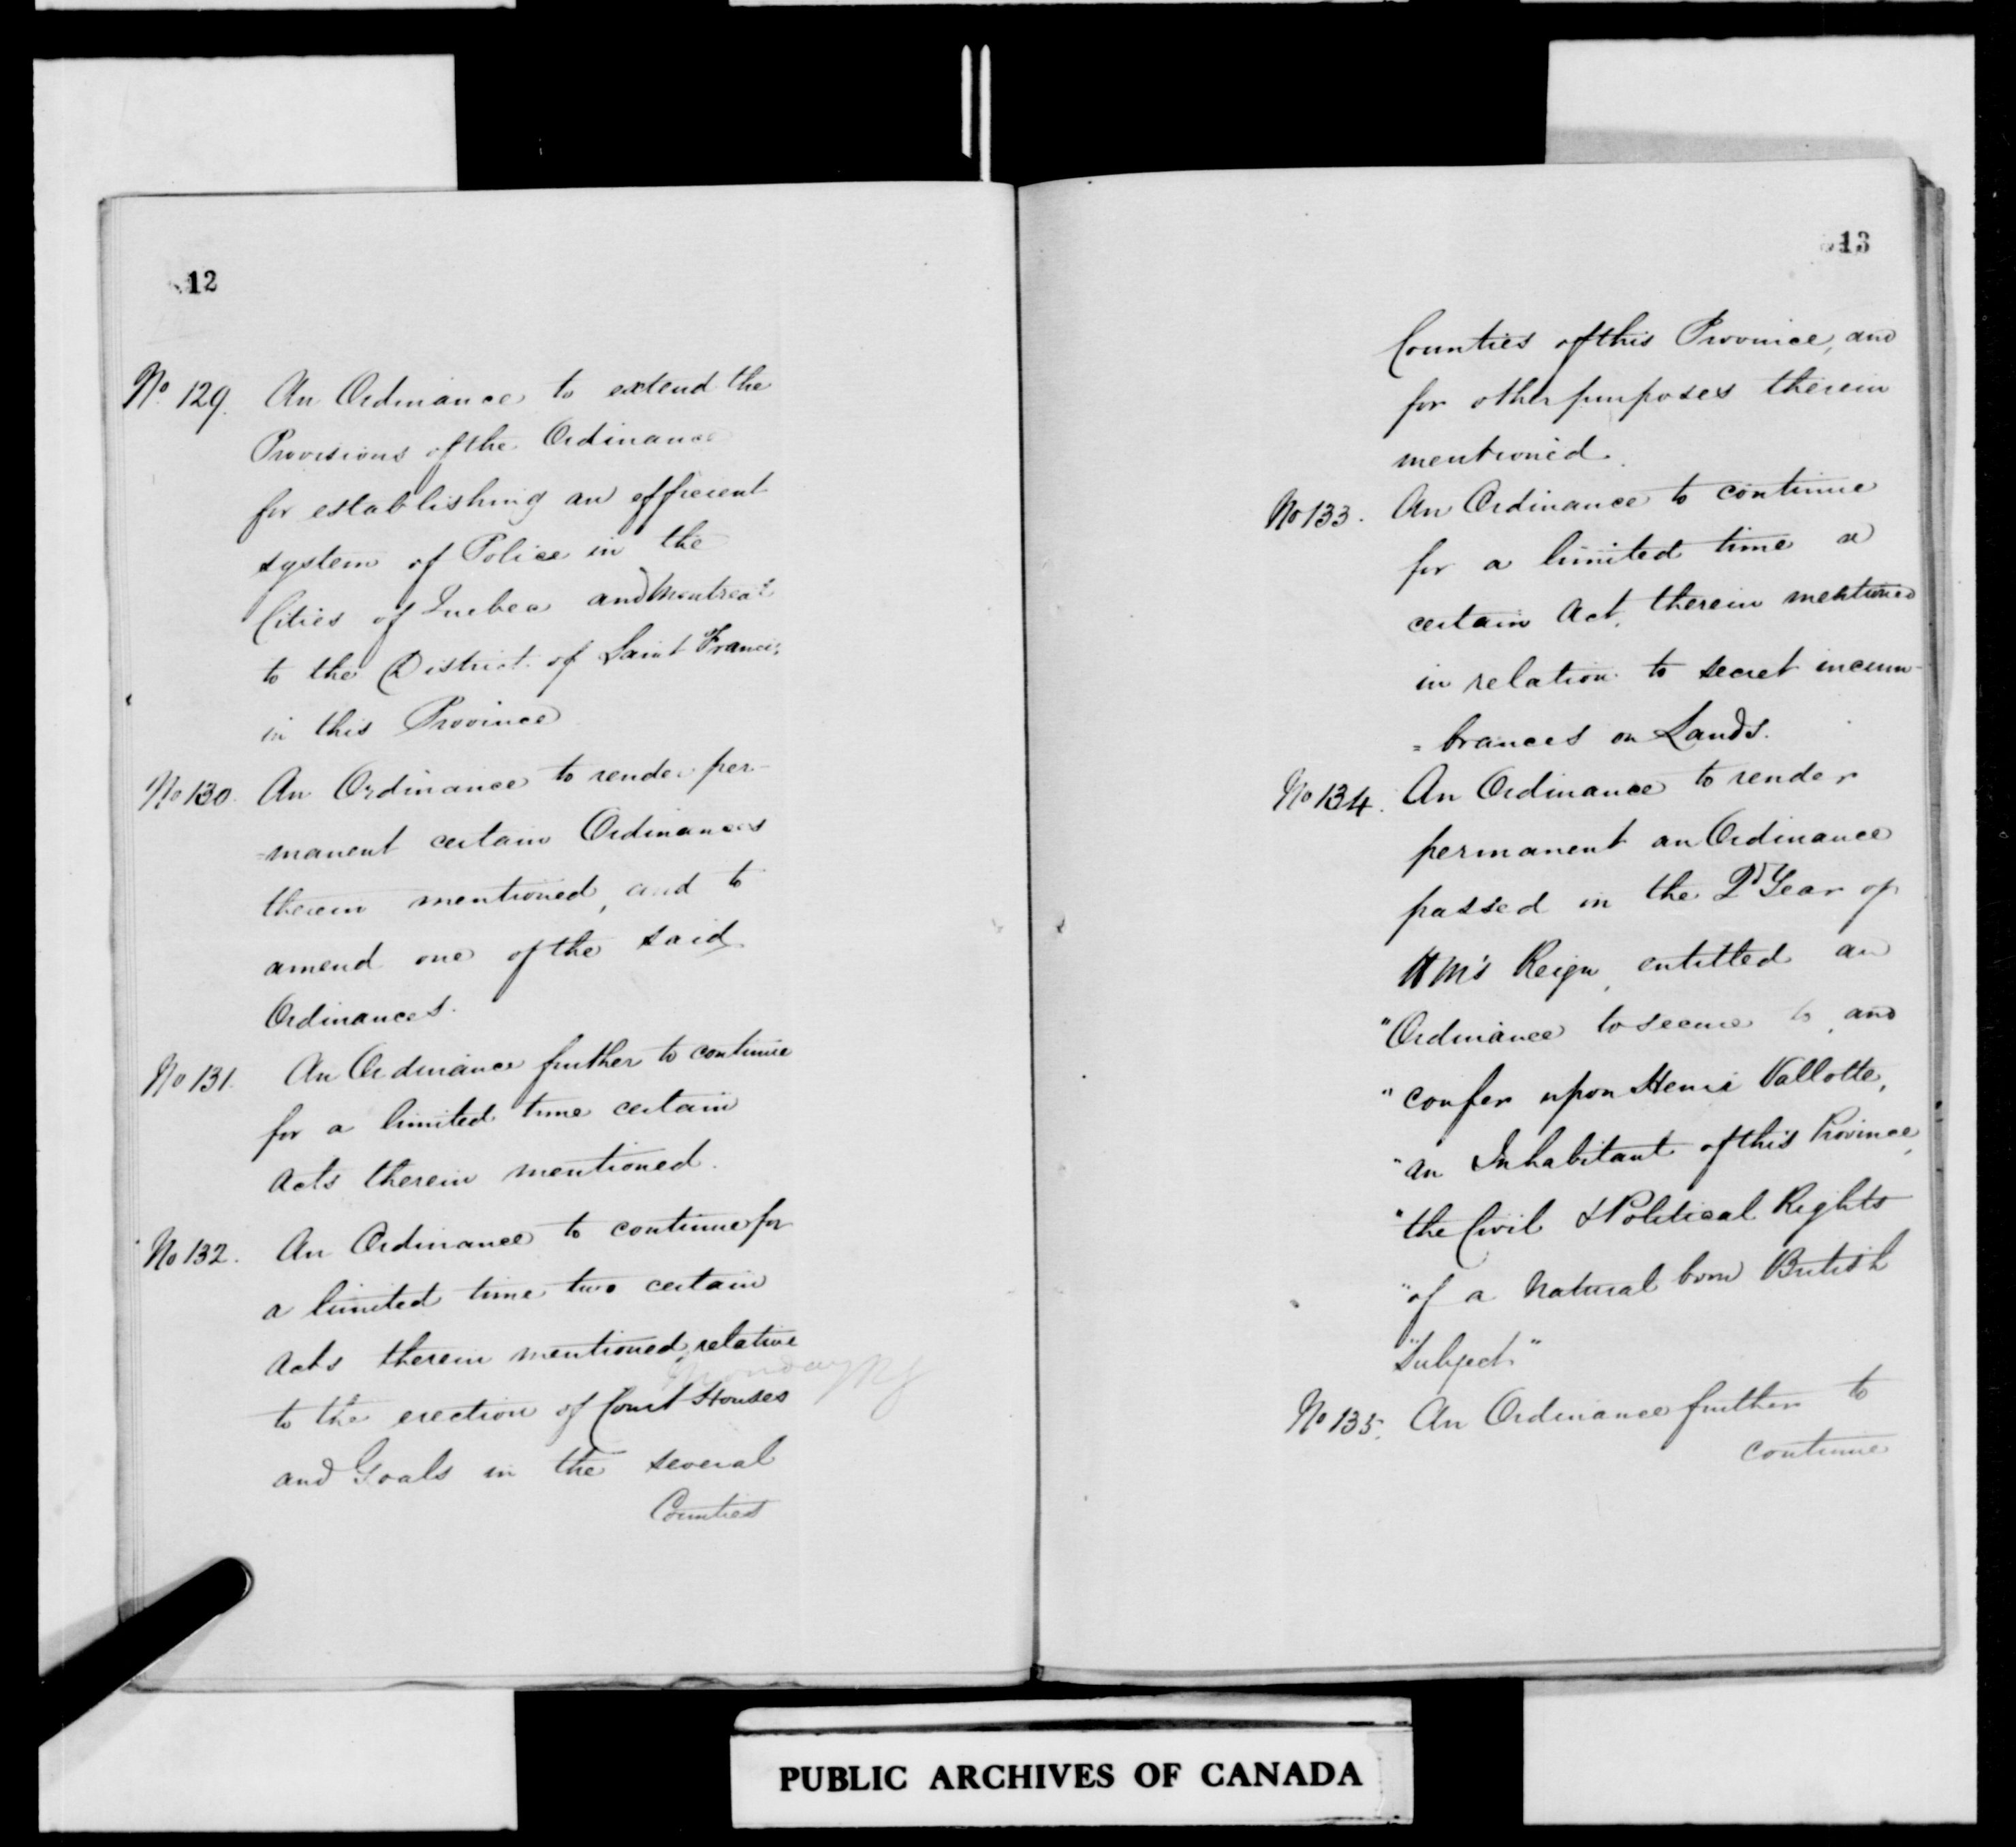 12
No. 129. An Ordinance to extend the
Provisions of the Ordinance
for establishing an efficient
system of Police in the
Cities of Quebec and Montreal
to the District of Saint Francis
in this Province
No 130. An Ordinance to render per-
=manent certain Ordinances
therein mentioned, and to
amend one of the said
Ordinances.
No 131. An Ordinance further to continue
for a limited time certain
Acts therein mentioned.
No 132. An Ordinance to continue for
a limited time two certain
Acts therein mentioned, relative
to the erection of Court Houses
and Goals in the several
Counties
13
Counties of this Province, and
for other purposes therein
mentioned.
No 133. An Ordinance to continue
for a limited time a
certain Act, therein mentioned
in relation to secret incum-
=brances on Lands.
No 134. An Ordinance to render
permanent an Ordinance
passed in the 2d Year of
HM's Reign, entitled an
"Ordinance to secure to, and
"confer upon Henri Vallotte,
"an Inhabitant of this Province,
"the Civil & Political Rights
"of a Natural born British
"Subject"
No 135. An Ordinance further to
continue
PUBLIC ARCHIVES OF CANADA